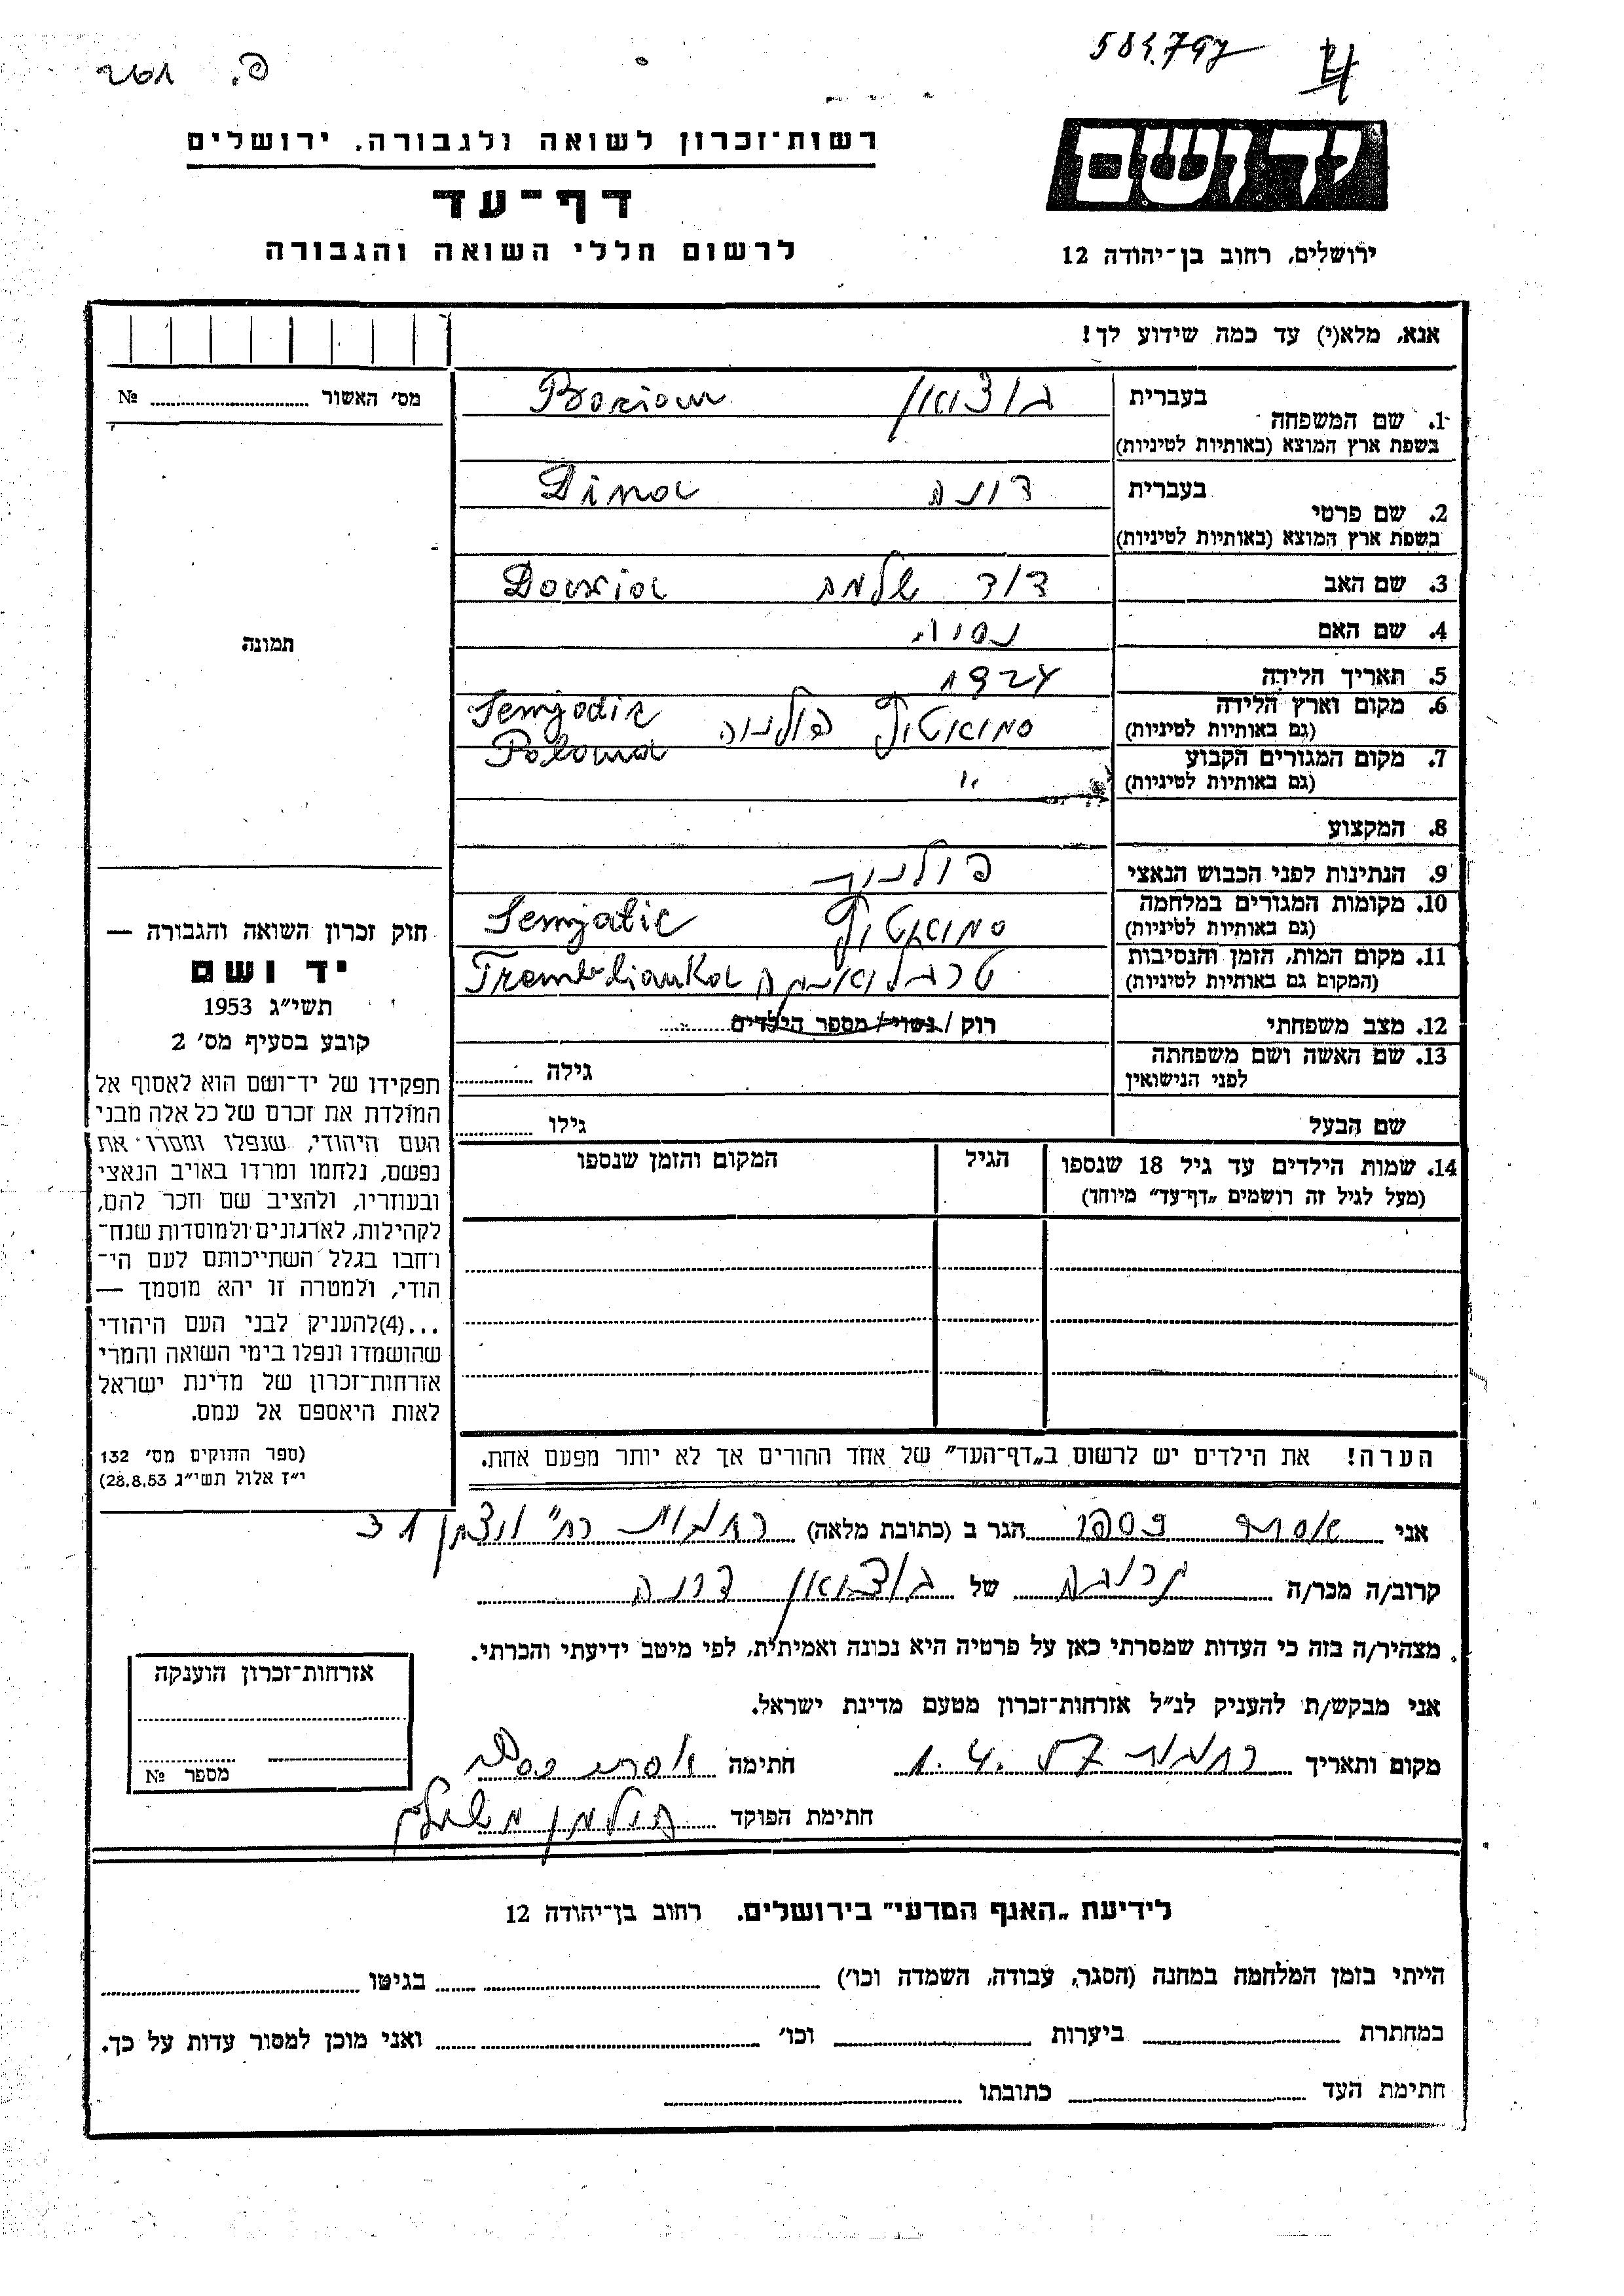 584.797
רשות־זכרון לשואה ולגבורה, ירושלים
יד ושם
דף־עד
לרשום חללי השואה והגבורה
ירושלים, רחוב בן־יהודה 12
אנא, מלא(י) עד כמה שידוע לך!
מס' האשור № 
בעברית
1. שם המשפחה
בשפת ארץ המוצא (באותיות לטיניות)
בעברית דינה Dina
2. שם פרטי
בשפת ארץ המוצא (באותיות לטיניות)
3. שם האב דוד שלמה
4. שם האם
5. תאריך הלידה 1924
6. מקום וארץ הלידה סמיאטיץ פולניה Semjatic
(גם באותיות לטיניות) Polona
7. מקום המגורים הקבוע "
(גם באותיות לטיניות)
8. המקצוע
9. הנתינות לפני הכבוש הנאצי פולנית
10. מקומות המגורים במלחמה סמיאטיץ Semjatic
(גם באותיות לטיניות)
11. מקום המות, הזמן והנסיבות טרבלינקה
(המקום גם באותיות לטיניות)
12. מצב משפחתי רווק / נשוי / מספר הילדים
13. שם האשה ושם משפחתה גילה
לפני הנישואין
שם הבעל גילו
14. שמות הילדים עד גיל 18 שנספו הגיל המקום והזמן שנספו
(מעל לגיל זה רושמים „דף־עד" מיוחד)
הערה! את הילדים יש לרשום ב„דף־העד" של אחד ההורים אך לא יותר מפעם אחת.
תמונה
חוק זכרון השואה והגבורה —
יד ושם
תשי"ג 1953
קובע בסעיף מס' 2
תפקידו של יד־ושם הוא לאסוף אל
המולדת את זכרם של כל אלה מבני
העם היהודי, שנפלו ומסרו את
נפשם, נלחמו ומרדו באויב הנאצי
ובעוזריו, ולהציב שם וזכר להם,
לקהילות, לארגונים ולמוסדות שנח־
רחבו בגלל השתייכותם לעם הי־
הודי, ולמטרה זו יהא מוסמך —
...(4)להעניק לבני העם היהודי
שהושמדו ונפלו בימי השואה והמרי
אזרחות־זכרון של מדינת ישראל
לאות היאספם אל עמם.
(ספר החוקים מס' 132
י"ז אלול תשי"ג 28.8.53)
אני אסתר הגר ב (כתובת מלאה) רחובות רח' ויצמן
קרוב/ה מכר/ה של דינה
מצהיר/ה בזה כי העדות שמסרתי כאן על פרטיה היא נכונה ואמיתית, לפי מיטב ידיעתי והכרתי.
אני מבקש/ת להעניק לנ"ל אזרחות־זכרון מטעם מדינת ישראל.
מקום ותאריך רחובות 1.4.57 חתימה אסתר
חתימת הפוקד
אזרחות־זכרון הוענקה
מספר №
לידיעת „האגף המדעי" בירושלים, רחוב בן־יהודה 12
הייתי בזמן המלחמה במחנה (הסגר, עבודה, השמדה וכו') בגיטו
במחתרת ביערות וכו' ואני מוכן למסור עדות על כך.
חתימת העד כתובתו